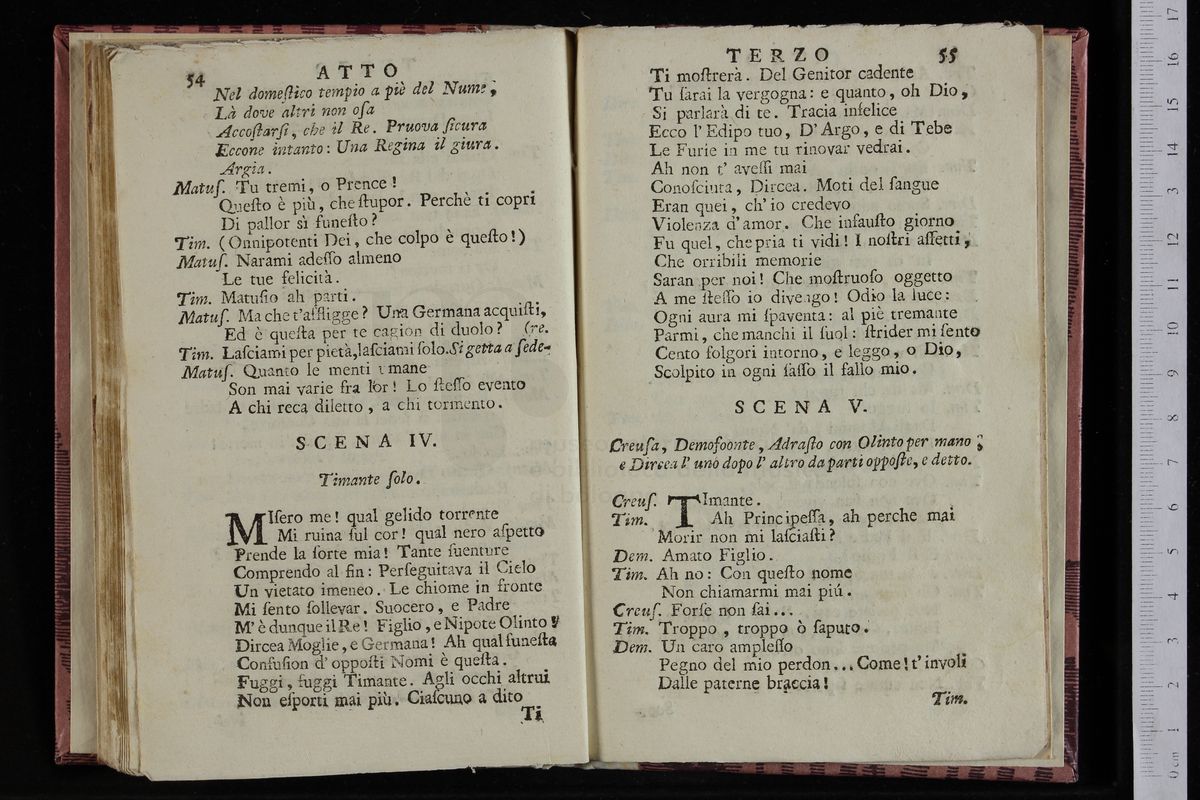 54 ATTO
Nel domeſtico tempio a piè del Nume,
Là dove altri non oſa
Accoſtarſi, che il Re. Pruova ſicura
Eccone intanto: Una Regina il giura.
Argia.
Matuſ. Tu tremi, o Prence!
Queſto è più, che ſtupor. Perchè ti copri
Di pallor sì funeſto?
Tim. (Onnipotenti Dei, che colpo è queſto!)
Matuſ. Narami adeſſo almeno
Le tue felicità.
Tim. Matuſio ah parti.
Matuſ. Ma che t'affligge? Una Germana acquiſti,
Ed è queſta per te cagion di duolo? (re.
Tim. Laſciami per pietà, laſciami ſolo. Si getta a ſede-
Matuſ. Quanto le menti umane
Son mai varie fra lor! Lo ſteſſo evento
A chi reca diletto, a chi tormento.
SCENA IV.
Timante ſolo.
MIſero me! qual gelido torrente
Mi ruina ſul cor! qual nero aſpetto
Prende la ſorte mia! Tante ſuenture
Comprendo al fin: Perſeguitava il Cielo
Un vietato imeneo. Le chiome in fronte
Mi ſento ſollevar. Suocero, e Padre
M'è dunque il Re! Figlio, e Nipote Olinto
Dircea Moglie, e Germana! Ah qual funeſta
Confuſion d'oppoſti Nomi è queſta.
Fuggi, fuggi Timante. Agli occhi altrui
Non eſporti mai più. Ciaſcuno a dito
Ti
TERZO 55
Ti moſtrerà. Del Genitor cadente
Tu ſarai la vergogna: e quanto, oh Dio,
Si parlarà di te. Tracia infelice
Ecco l'Edipo tuo, D'Argo, e di Tebe
Le Furie in me tu rinovar vedrai.
Ah non t'aveſſi mai
Conoſciuta, Dircea. Moti del ſangue
Eran quei, ch'io credevo
Violenza d'amor. Che infauſto giorno
Fu quel, che pria ti vidi! I noſtri affetti,
Che orribili memorie
Saran per noi! Che moſtruoſo oggetto
A me ſteſſo io divengo! Odio la luce:
Ogni aura mi ſpaventa: al piè tremante
Parmi, che manchi il ſuol: ſtrider mi ſento
Cento folgori intorno, e leggo, o Dio,
Scolpito in ogni ſaſſo il fallo mio.
SCENA V.
Creuſa, Demofoonte, Adraſto con Olinto per mano;
e Dircea l'uno dopo l'altro da parti oppoſte, e detto.
Creuſ. TImante.
Tim. Ah Principeſſa, ah perche mai
Morir non mi laſciaſti?
Dem. Amato Figlio.
Tim. Ah no: Con queſto nome
Non chiamarmi mai piú.
Creuſ. Forſe non ſai...
Tim. Troppo, troppo ò ſaputo.
Dem. Un caro ampleſſo
Pegno del mio perdon... Come! t'involi
Dalle paterne braccia!
Tim.
0 cm 1 2 3 4 5 6 7 8 9 10 11 12 13 14 15 16 17